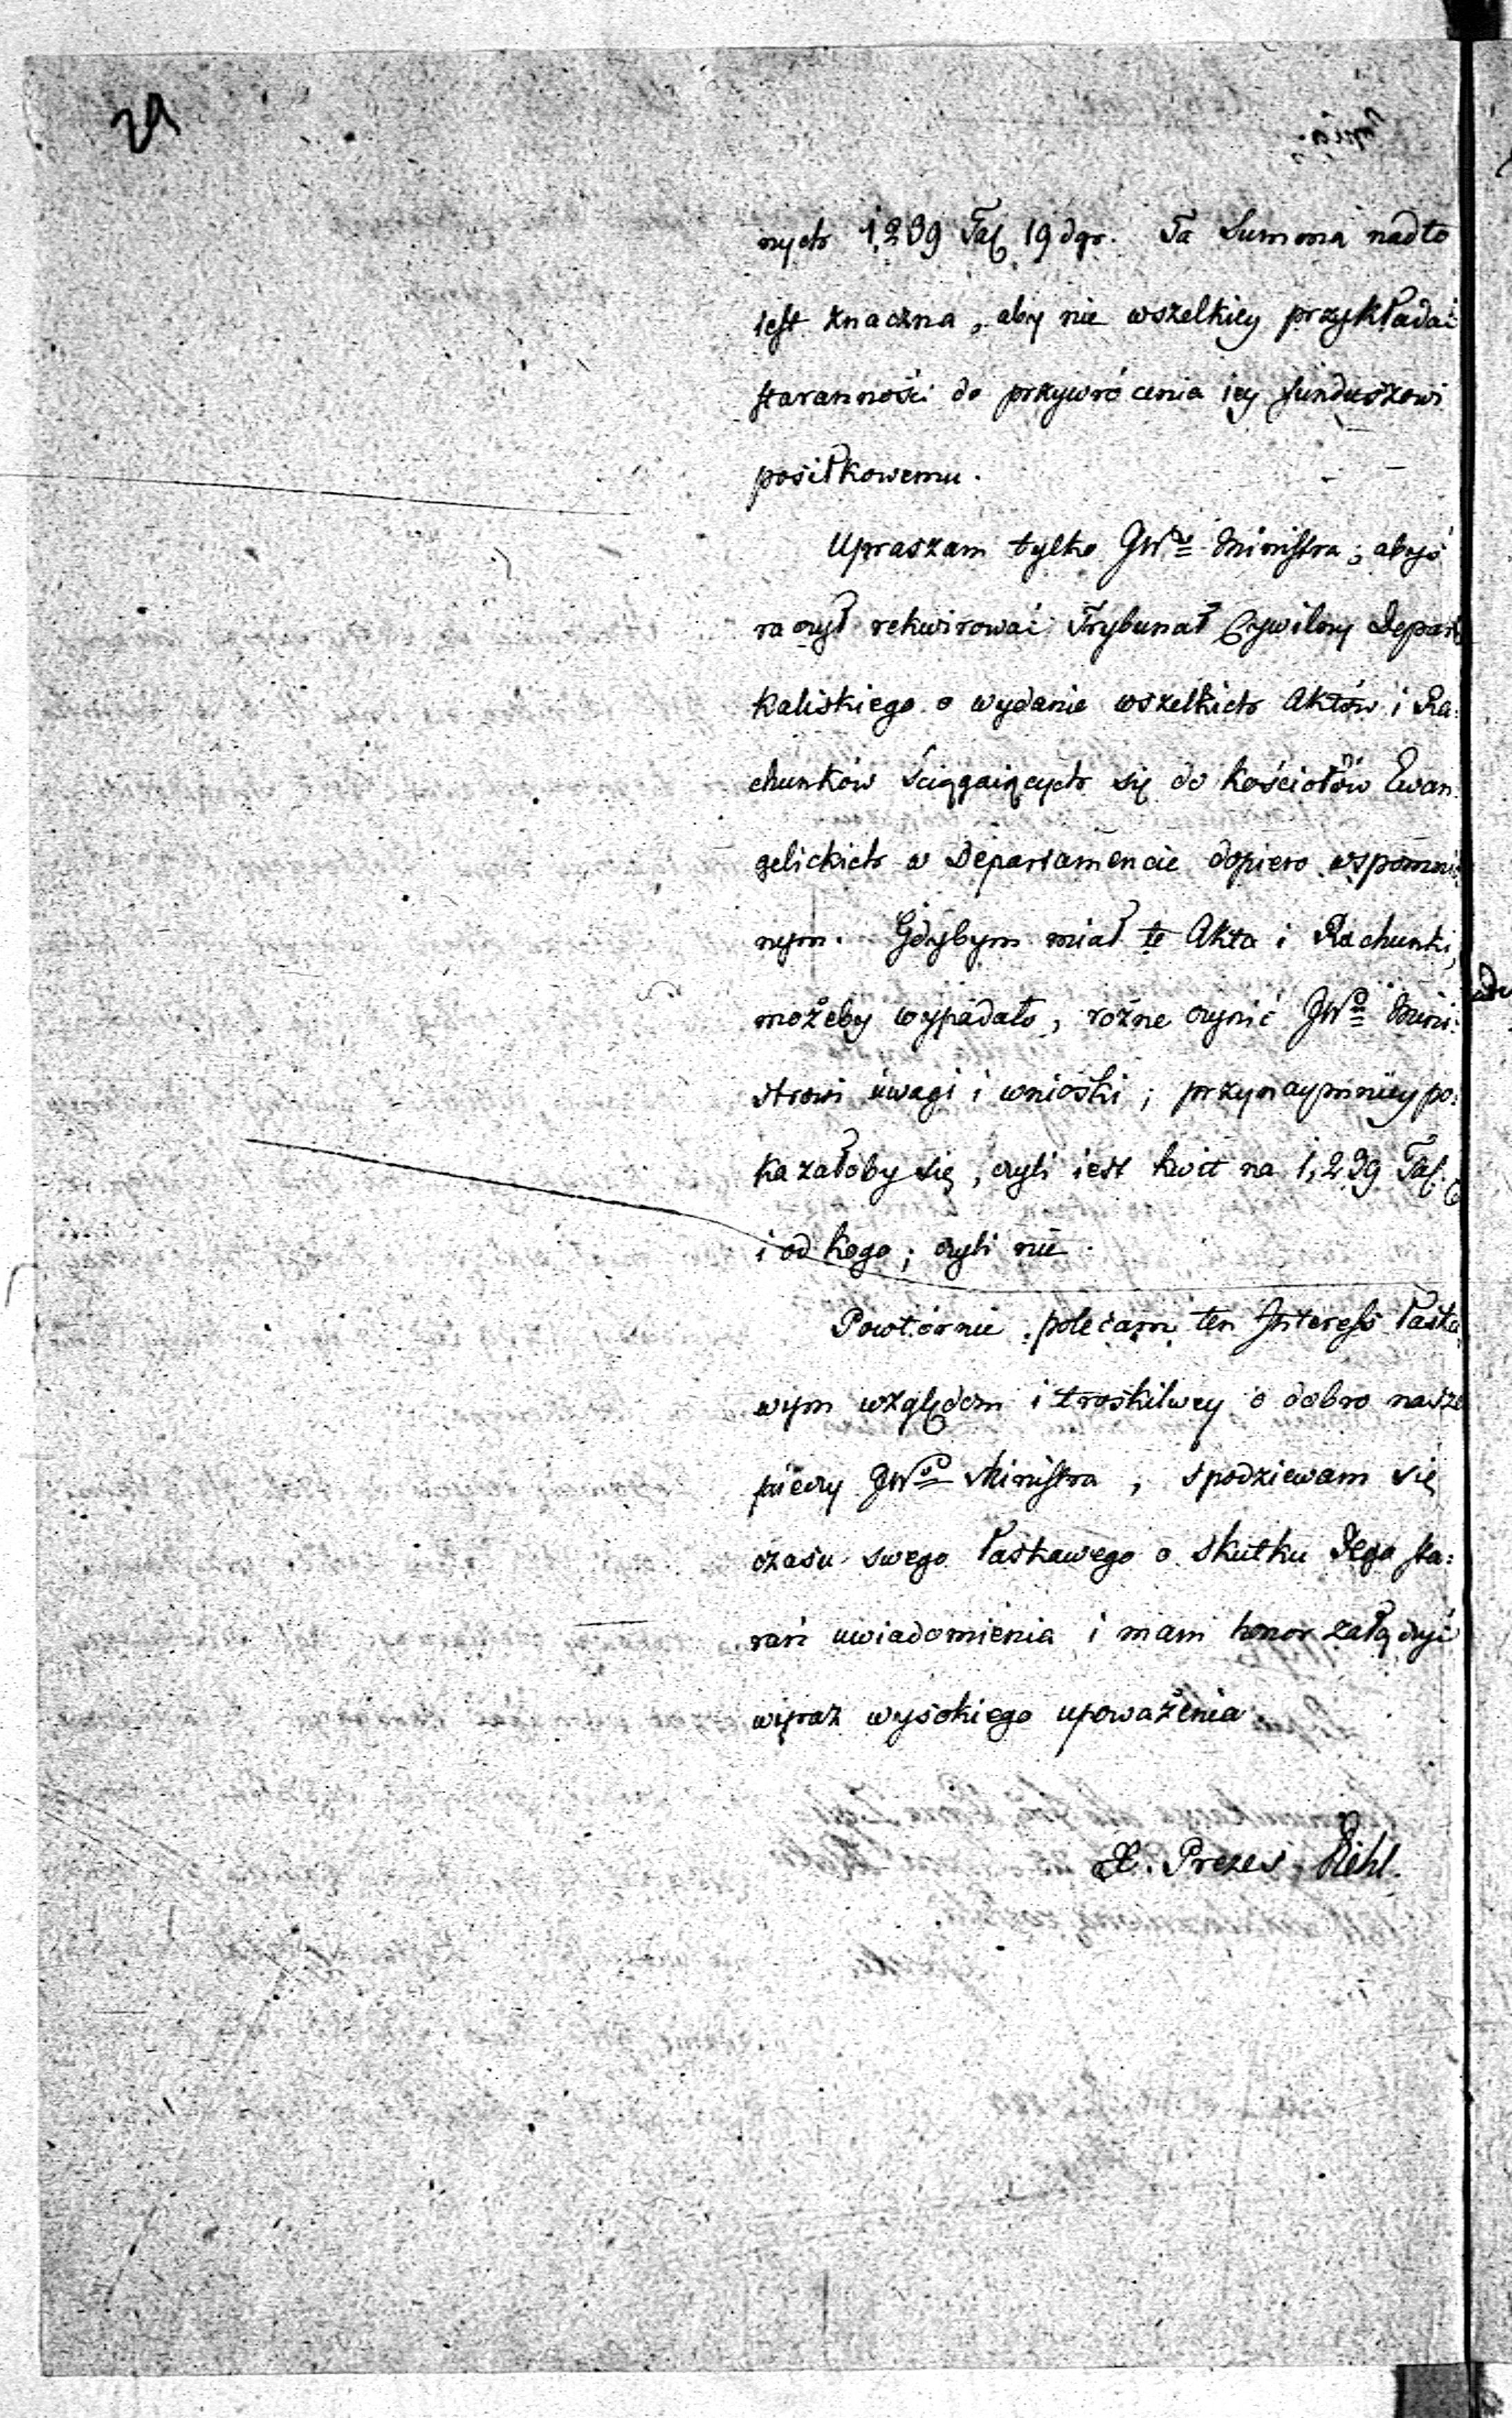 nych 1,239 Tal 19 dgr. Ta Summa nadto
iest znaczna, aby nie wszelkiey przykładać
staranności do przywrócenia iey funduszowi
posiłkowemu.
Upraszam tylko JWo Ministra, abyś
raczył rekwirować Trybunał Cywilny Depart
kaliskiego o wydanie wszelkich Aktów i Ra:
chunków ściągaiących się do kościołów Ewan
gelickich w Departamencie dopiero wspomnio
nym. Gdybym miał te Akta i Rachunki,
możeby wypadało, różne czynić JWo Mini:
strowi uwagi i wnioski; przynaymniey po:
kazałoby się, czyli iest kwit na 1,239 Tal.
i od kogo; czyli nie.
Powtórnie polecam ten Interess łaska
wym względom i troskliwey o dobro nasze
pieczy JWo Ministra, spodziewam się
czasu swego łaskawego o skutku Jego sta:
rań uwiadomienia i mam honor załączyć
wyraz wysokiego upoważenia.
X. Prezes Diehl.